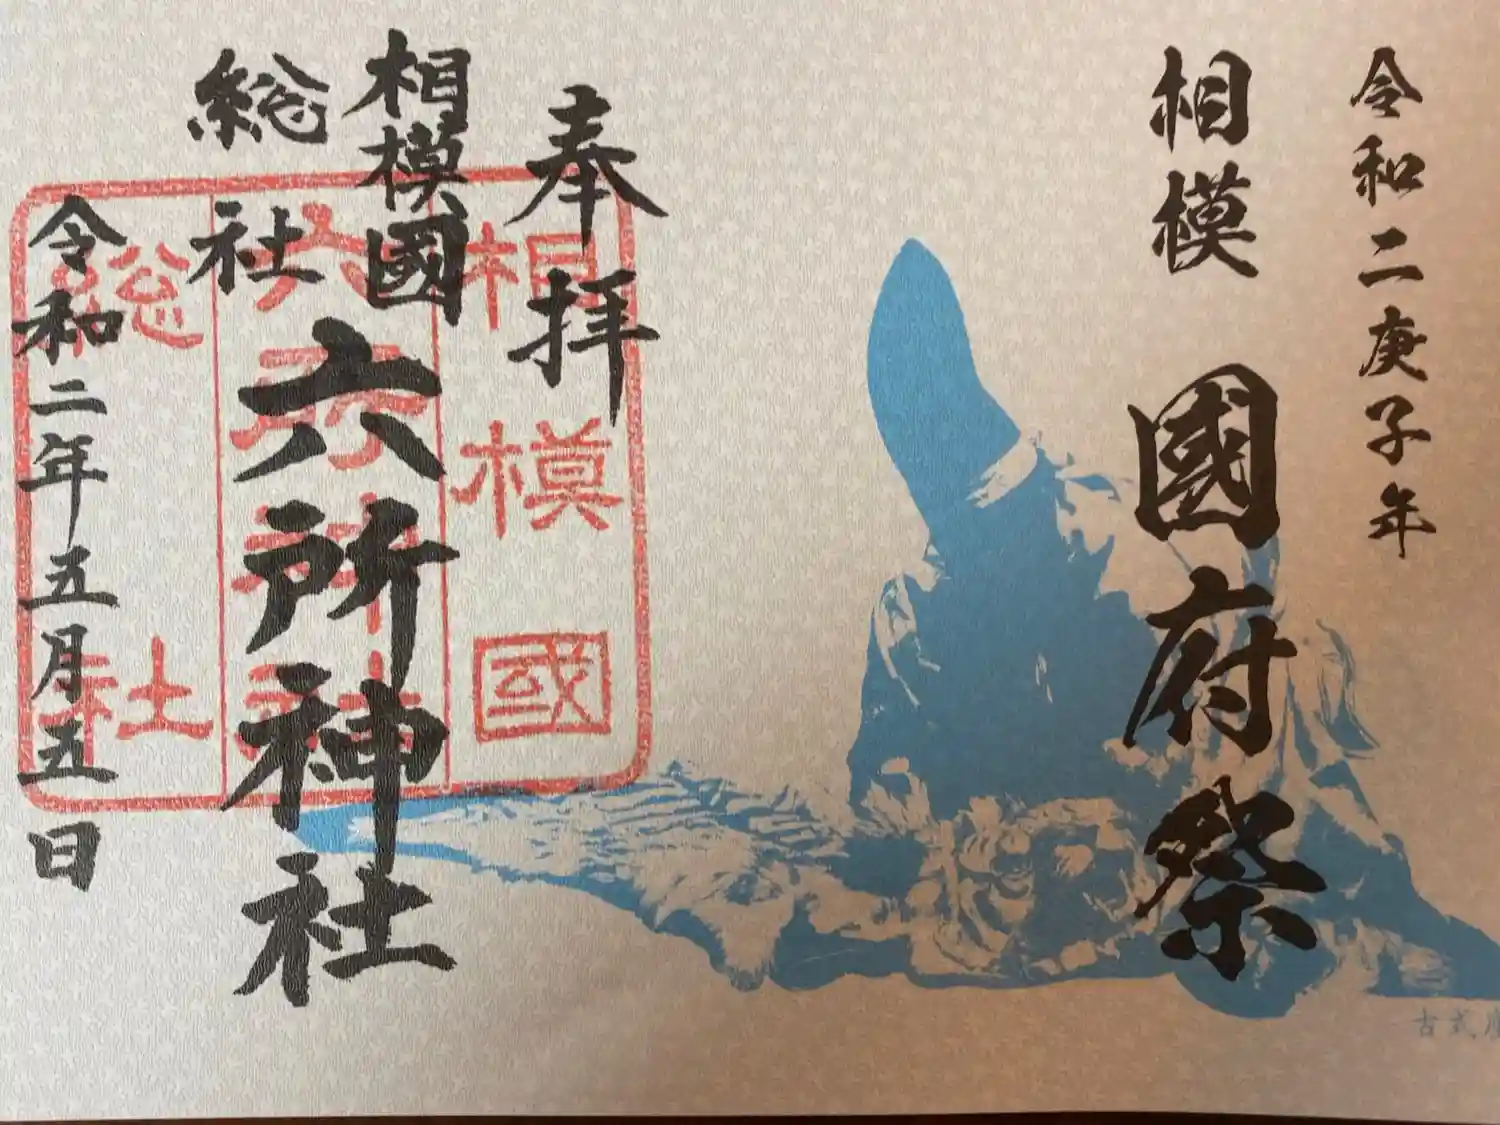 令和二庚子年
相模 國府祭
奉拝
相模國
総社
六所神社
令和二年五月五日
相模國
六所神社
総社
古式